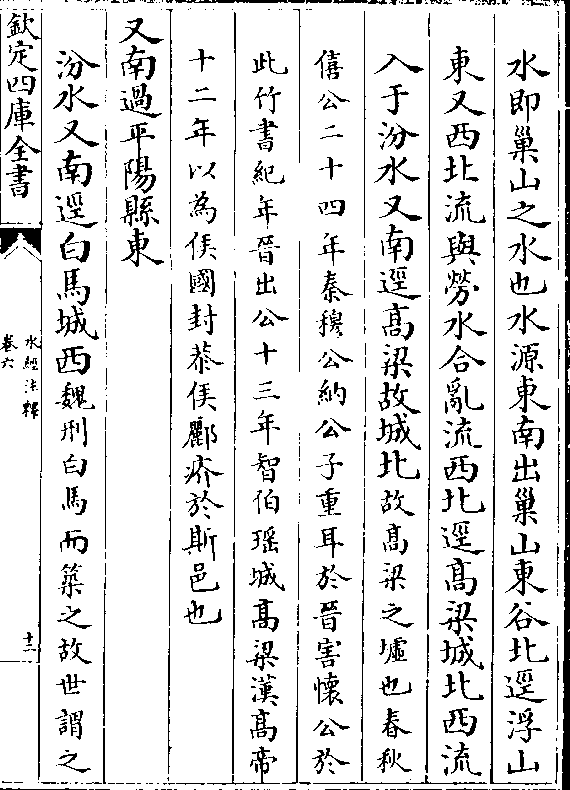 水即巢山之水也水源東南出巢山東谷北逕浮山
東又西北流與勞水合亂流西北逕髙梁城北西流
入于汾水又南逕髙梁故城北故髙梁之墟也春秋
僖公二十四年秦穆公納公子重耳於晉害懷公於
此竹書紀年晉出公十三年智伯瑶城髙梁漢髙帝
十二年以為侯國封恭侯酈疥於斯邑也
又南過平陽縣東
汾水又南逕白馬城西魏刑白馬而築之故世謂之
欽定四庫全書
水經注釋
卷六
十二